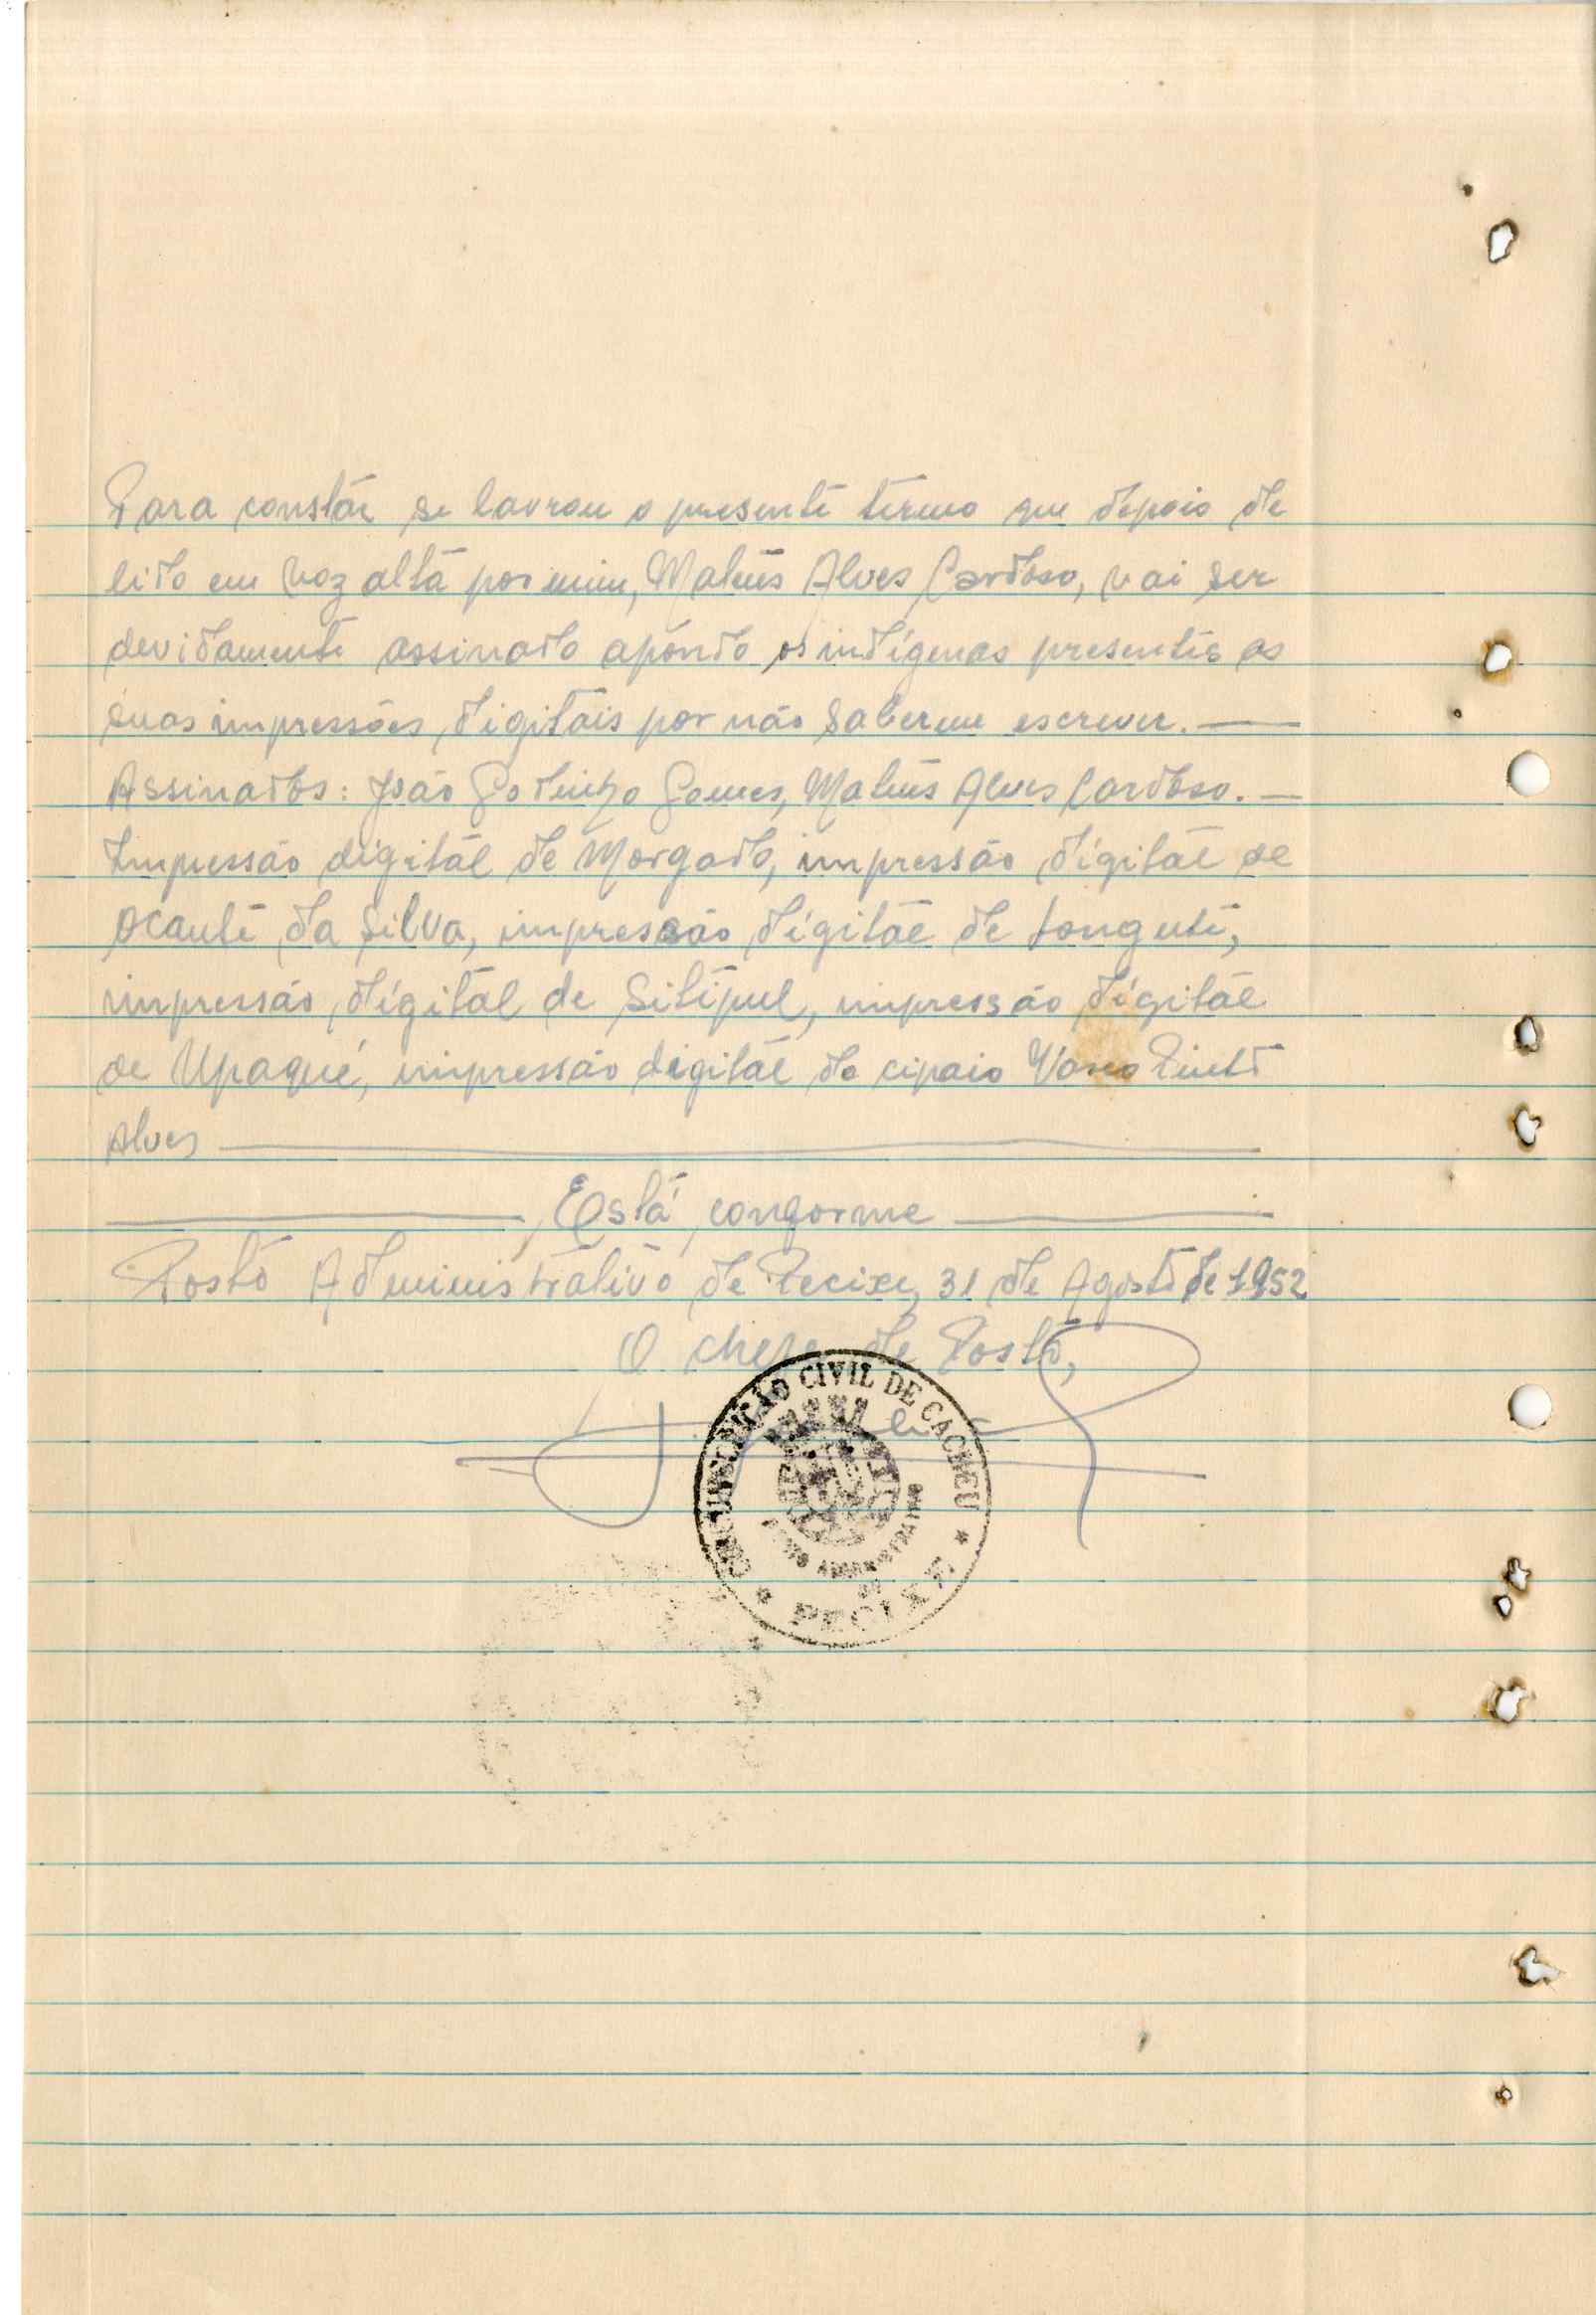 Para constár se lavrou o presente têrmo que depois de
lido em voz alta por mim, Mateus Alves Cardoso, vai ser
devidamente assinado apondo os indígenas presentes as
suas impressões digitais por não saberem escrever. —
Assinados: João Godinho Gomes, Mateus Alves Cardoso. —
Impressão digital de Morgado, impressão digital de
Acauté da Silva, impressão digital de Tonguté,
impressão digital de Sitipul, impressão digital
de Upaqué, impressão digital do cipaio Vasco Pinto
Alves
Está conforme
Posto Administrativo de Pecixe, 31 de Agosto de 1952
O chefe de Posto,
CIRCUNSCRIÇÃO CIVIL DE CACHEU
* PECIXE *